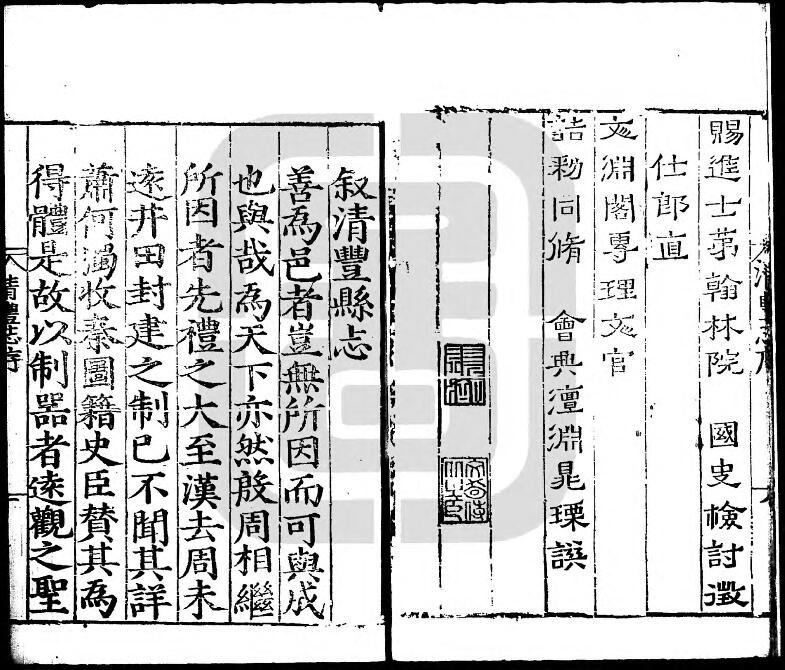 賜進士苐翰林院　國史檢討徵
仕郎直
文淵閣專理文官
誥勅同脩　會典澶淵晁瑮譔
叙清豐縣志
善為邑者豈無所因而可與成
也與哉為天下亦然殷周相繼
所因者先禮之大至漢去周未
逺井田封建之制已不聞其詳
蕭何獨收秦圖籍史臣賛其為
得體是故以制噐者逺觀之聖
清豊志序